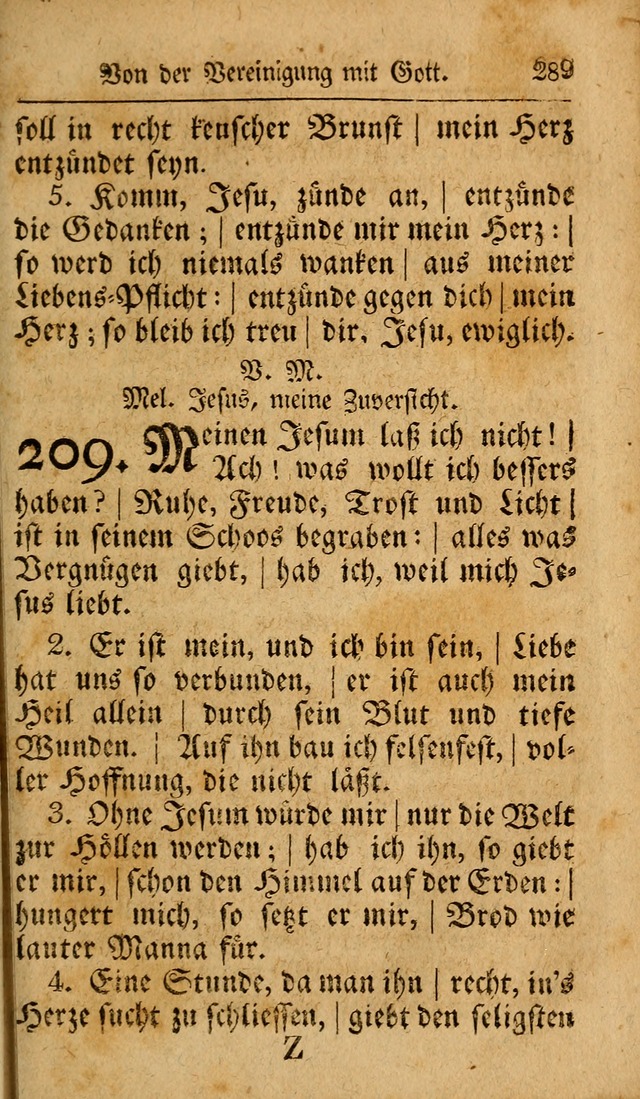 Von der Vereinigung mit Gott. 289
soll in recht keuscher Brunst | mein Herz
entzündet seyn.
5. Komm, Jesu, zünde an, | entzünde
die Gedanken; | entzünde mir mein Herz: |
so werd ich niemals wanken | aus meiner
Liebens-Pflicht: | entzünde gegen dich | mein
Herz; so bleib ich treu | dir, Jesu, ewiglich.
V. M.
Mel. Jesus, meine Zuversicht.
209. Meinen Jesum laß ich nicht! |
Ach! was wollt ich bessers
haben? | Ruhe, Freude, Trost und Licht |
ist in seinem Schoos begraben: | alles was
Vergnügen giebt, | hab ich, weil mich Je-
sus liebt.
2. Er ist mein, und ich bin sein, | Liebe
hat uns so verbunden, | er ist auch mein
Heil allein | durch sein Blut und tiefe
Wunden. | Auf ihn bau ich felsenfest, | vol-
ler Hoffnung, die nicht läßt.
3. Ohne Jesum würde mir | nur die Welt
zur Höllen werden; | hab ich ihn, so giebt
er mir, | schon den Himmel auf der Erden: |
hungert mich, so setzt er mir, | Brod wie
lauter Manna für.
4. Eine Stunde, da man ihn | recht, in's
Herze sucht zu schliessen, | giebt den seligsten
Z